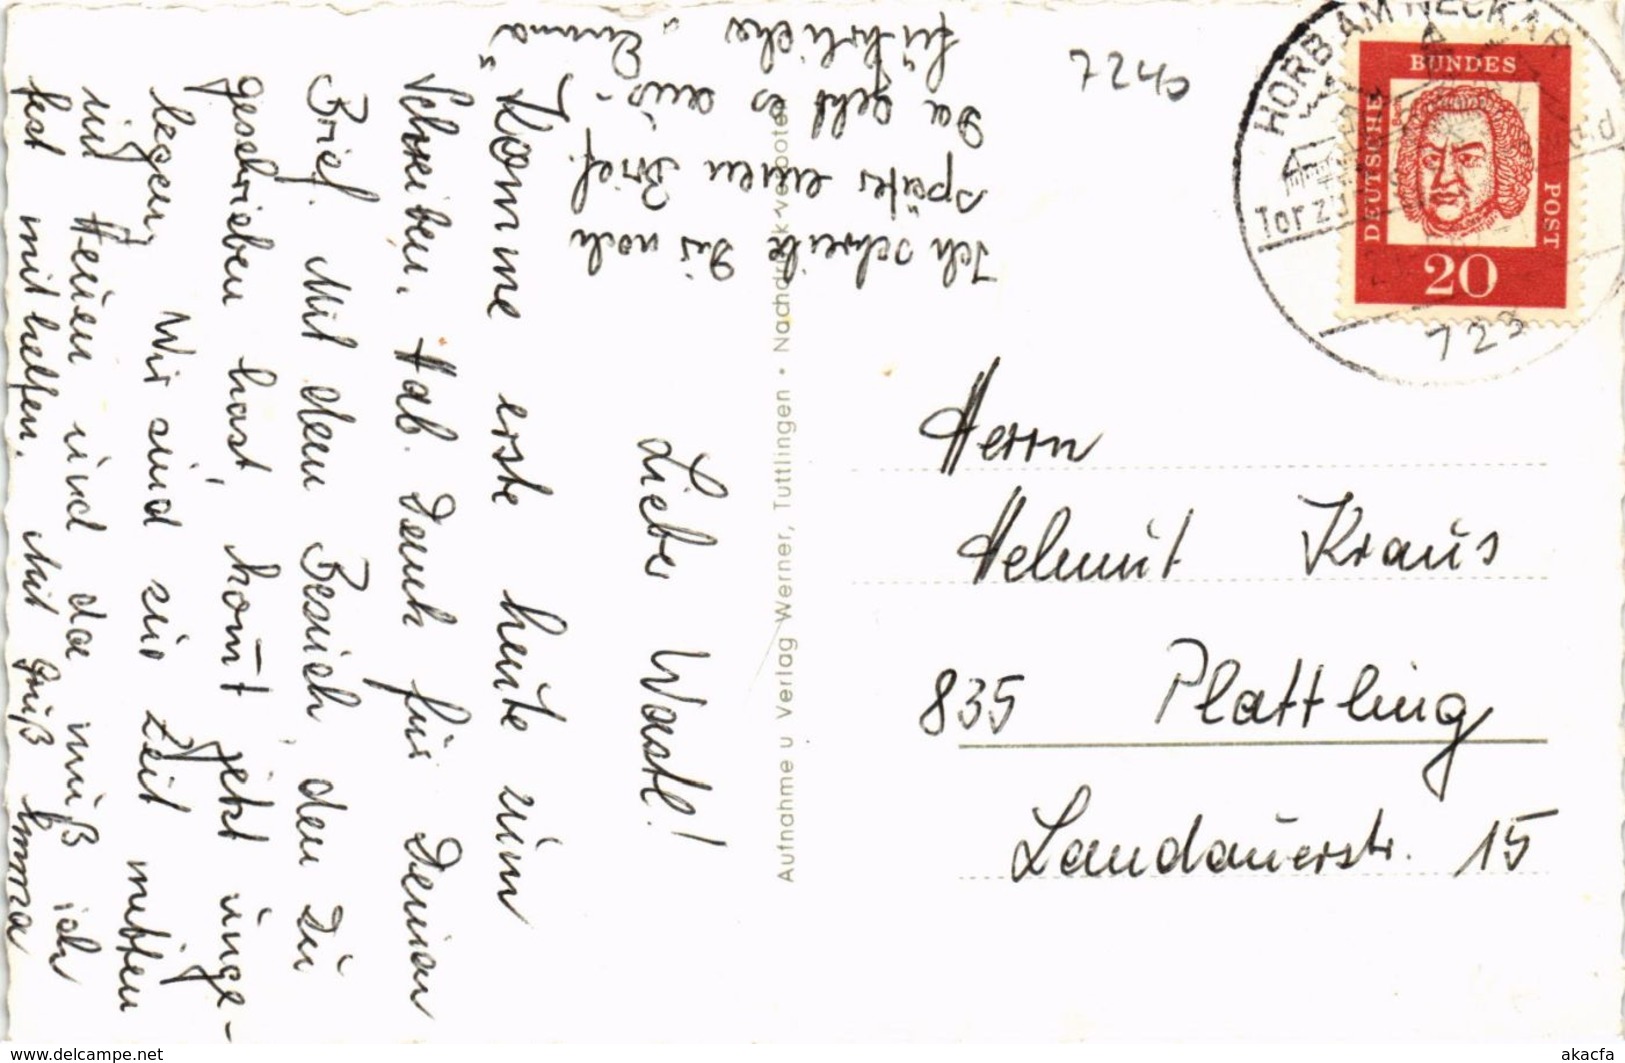 Lieber Wastl!
Komme erst heute zum
Schreiben. Hab Dank für Deinen
Brief. Mit dem Besuch, den Du
geschrieben hast, kom̄t jetzt unge-
legen, Wir sind zur Zeit mitten
im Heuen und da muß ich
fest mithelfen. Mit Gruß Emma
Ich schreibe Dir noch
später einen Brief.
Da geht es aus-
führlicher "Emma"
Aufnahme u Verlag Werner, Tuttlingen • Nachdruck verboten
7240
HORB AM NECKAR
Tor zu
723
DEUTSCHE
BUNDES
POST
20
Herrn
Helmut Kraus
835 Plattling
Landauerstr. 15
www.delcampe.net
akacfa